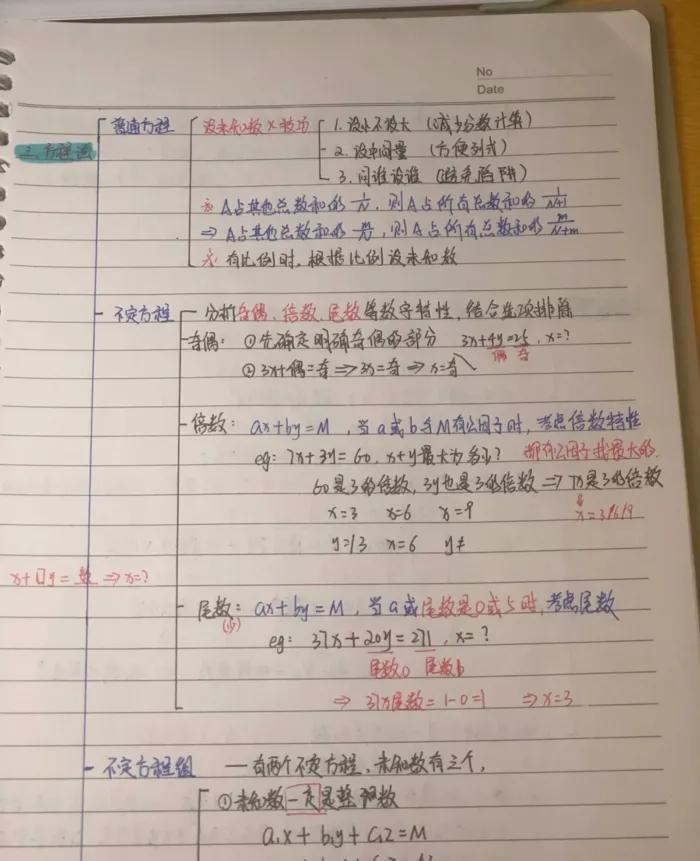 No
Date
三.方程法
普通方程
设未知数×技巧
1. 设小不设大 (减少分数计算)
2. 设中间量 (方便列式)
3. 问谁设谁 (避免陷阱)
※ A占其他总数和的 1/N, 则A占所有总数和的 1/(N+1)
⇒ A占其他总数和的 m/N, 则A占所有总数和的 m/(N+m)
※ 有比例时, 根据比例设未知数
不定方程 — 分析奇偶、倍数、尾数等数字特性, 结合选项排除
奇偶: ①先确定明确奇偶的部分 3x+4y=25, x=?
偶 奇
②3x+偶=奇⇒3x=奇⇒x=奇
倍数: ax+by=M, 当a或b与M有公因子时, 考虑倍数特性
eg: 7x+3y=60, x+y最大为多少? 都有公因子找最大的.
60是3的倍数, 3y也是3的倍数⇒7x是3的倍数
x=3 x=6 x=9 x=3/6/9
y=13 x=6 y≠
x+□y=数⇒x=?
尾数: ax+by=M, 当a或尾数是0或5时, 考虑尾数
(b)
eg: 37x+20y=271, x=?
尾数0 尾数b
⇒ 37x尾数=1-0=1 ⇒x=3
不定方程组 — 有两个不定方程、未知数有三个,
①未知数一定是整数
a₁x+b₁y+c₁z=M